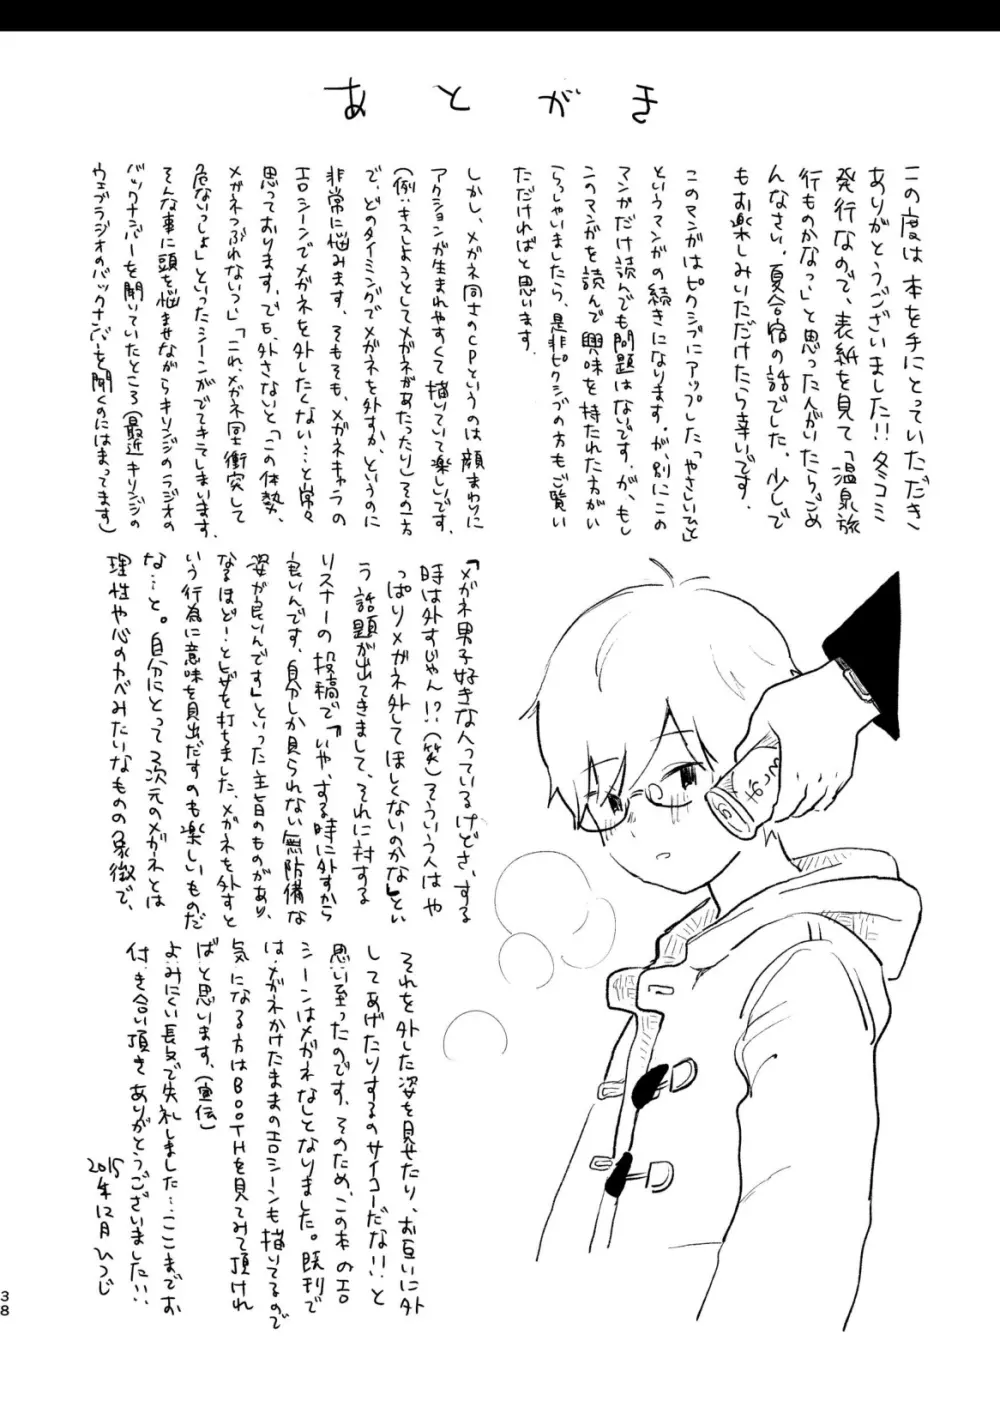 あとがき
この度は本を手にとっていただき
ありがとうございました!!冬コミ
発行なので、表紙を見て「温泉旅
行ものかなっ」と思った人がいたらごめ
んなさい。夏合宿の話でした。少しで
もお楽しみいただけたら幸いです。
このマンガはピクシブにアップした「やさしいひと」
というマンガの続きになります。が、別にこの
マンガだけ読んでも問題はないです。が、もし
このマンガを読んで興味を持たれた方がい
らっしゃいましたら、是非ピクシブの方もご覧い
ただければと思います。
しかし、メガネ同士のCPというのは顔まわりに
アクションが生まれやすくて描いていて楽しいです。
(例:キスしようとしてメガネがあたったり)その一方
で、どのタイミングでメガネを外すか、というのに
非常に悩みます。そもそも、メガネキャラの
エロシーンでメガネを外したくない…と常々
思っております。でも、外さないと「この体勢、
メガネつぶれないっ」「これ、メガネ同士衝突して
危ないっしょ」といったシーンがでてきてしまいます。
そんな事に頭を悩ませながらキリンジのラジオの
バックナンバーを聞いていたところ(最近キリンジの
ウェブラジオのバックナンバーを聞くのにはまってます)
「メガネ男子好きな人っているけどさ、する
時は外すじゃん!?(笑)そういう人はや
っぱりメガネ外してほしくないのかな」とい
う話題が出てきまして、それに対する
リスナーの投稿で「いや、する時に外すから
良いんです、自分しか見られない無防備な
姿が良いんです」といった主旨のものがあり、
なるほど…とヒザを打ちました。メガネを外すと
いう行為に意味を見出だすのも楽しいものだ
な…と。自分にとって2次元のメガネとは
理性や心のカベみたいなものの象徴で、
それを外した姿を見せたり、お互いに外
してあげたりするのサイコーだな!!と
思い至ったのです。そのため、この本のエロ
シーンはメガネなしとなりました。既刊で
は、メガネかけたままのエロシーンも描いてるので
気になる方はBOOTHを見てみて頂けれ
ばと思います。(宣伝)
よみにくい長文で失礼しました…ここまでお
付き合い頂きありがとうございました!!
2015年12月 ひつじ
38